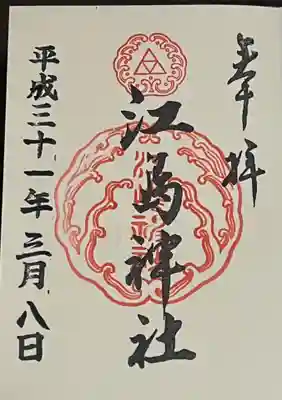 奉拝
江島神社
平成三十一年三月八日